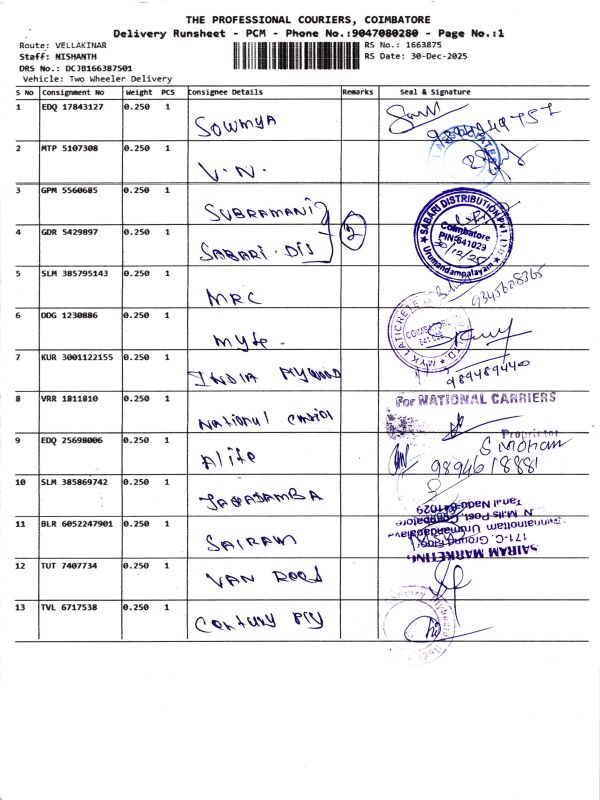 THE PROFESSIONAL COURIERS, COIMBATORE
Delivery Runsheet - PCM - Phone No.:9047080280 - Page No.:1
Route: VELLAKINAR
RS No.: 1663875
Staff: NISHANTH
RS Date: 30-Dec-2025
DRS No.: DCJB166387501
Vehicle: Two Wheeler Delivery
S No Consignment No Weight PCS Consignee Details Remarks Seal & Signature
1 EDQ 17843127 0.250 1 SOWMYA
2 MTP 5107308 0.250 1 V.N.
3 GPM 5560685 0.250 1 SUBRAMANI
SABARI DISTRIBUTION PVT LTD
Coimbatore
PIN-641029
30/12/25
Urumandampalayam
4 GDR 5429897 0.250 1 SABARI.DIS 2
5 SLM 385795143 0.250 1 MRC 9345608365
6 DDG 1230886 0.250 1 Myte.
COIMBATORE
7 KUR 3001122155 0.250 1 INDIA Plywood 9894894400
8 VRR 1811810 0.250 1 National
For NATIONAL CARRIERS
Proprietor
9 EDQ 25698006 0.250 1 Alife S Mohan
9894618881
10 SLM 385869742 0.250 1 JAGADAMBA
11 BLR 6052247901 0.250 1 SAIRAM
SAIRAM MARKETING,
171-C, Ground Floor
Tamil Nadu-641029
12 TUT 7407734 0.250 1 VAN ROOS
13 TVL 6717538 0.250 1 Century Ply